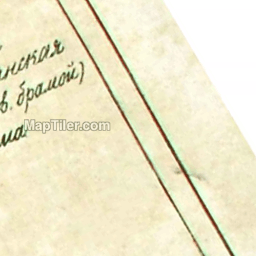 нская
в. брамой)
ма
MapTiler.com